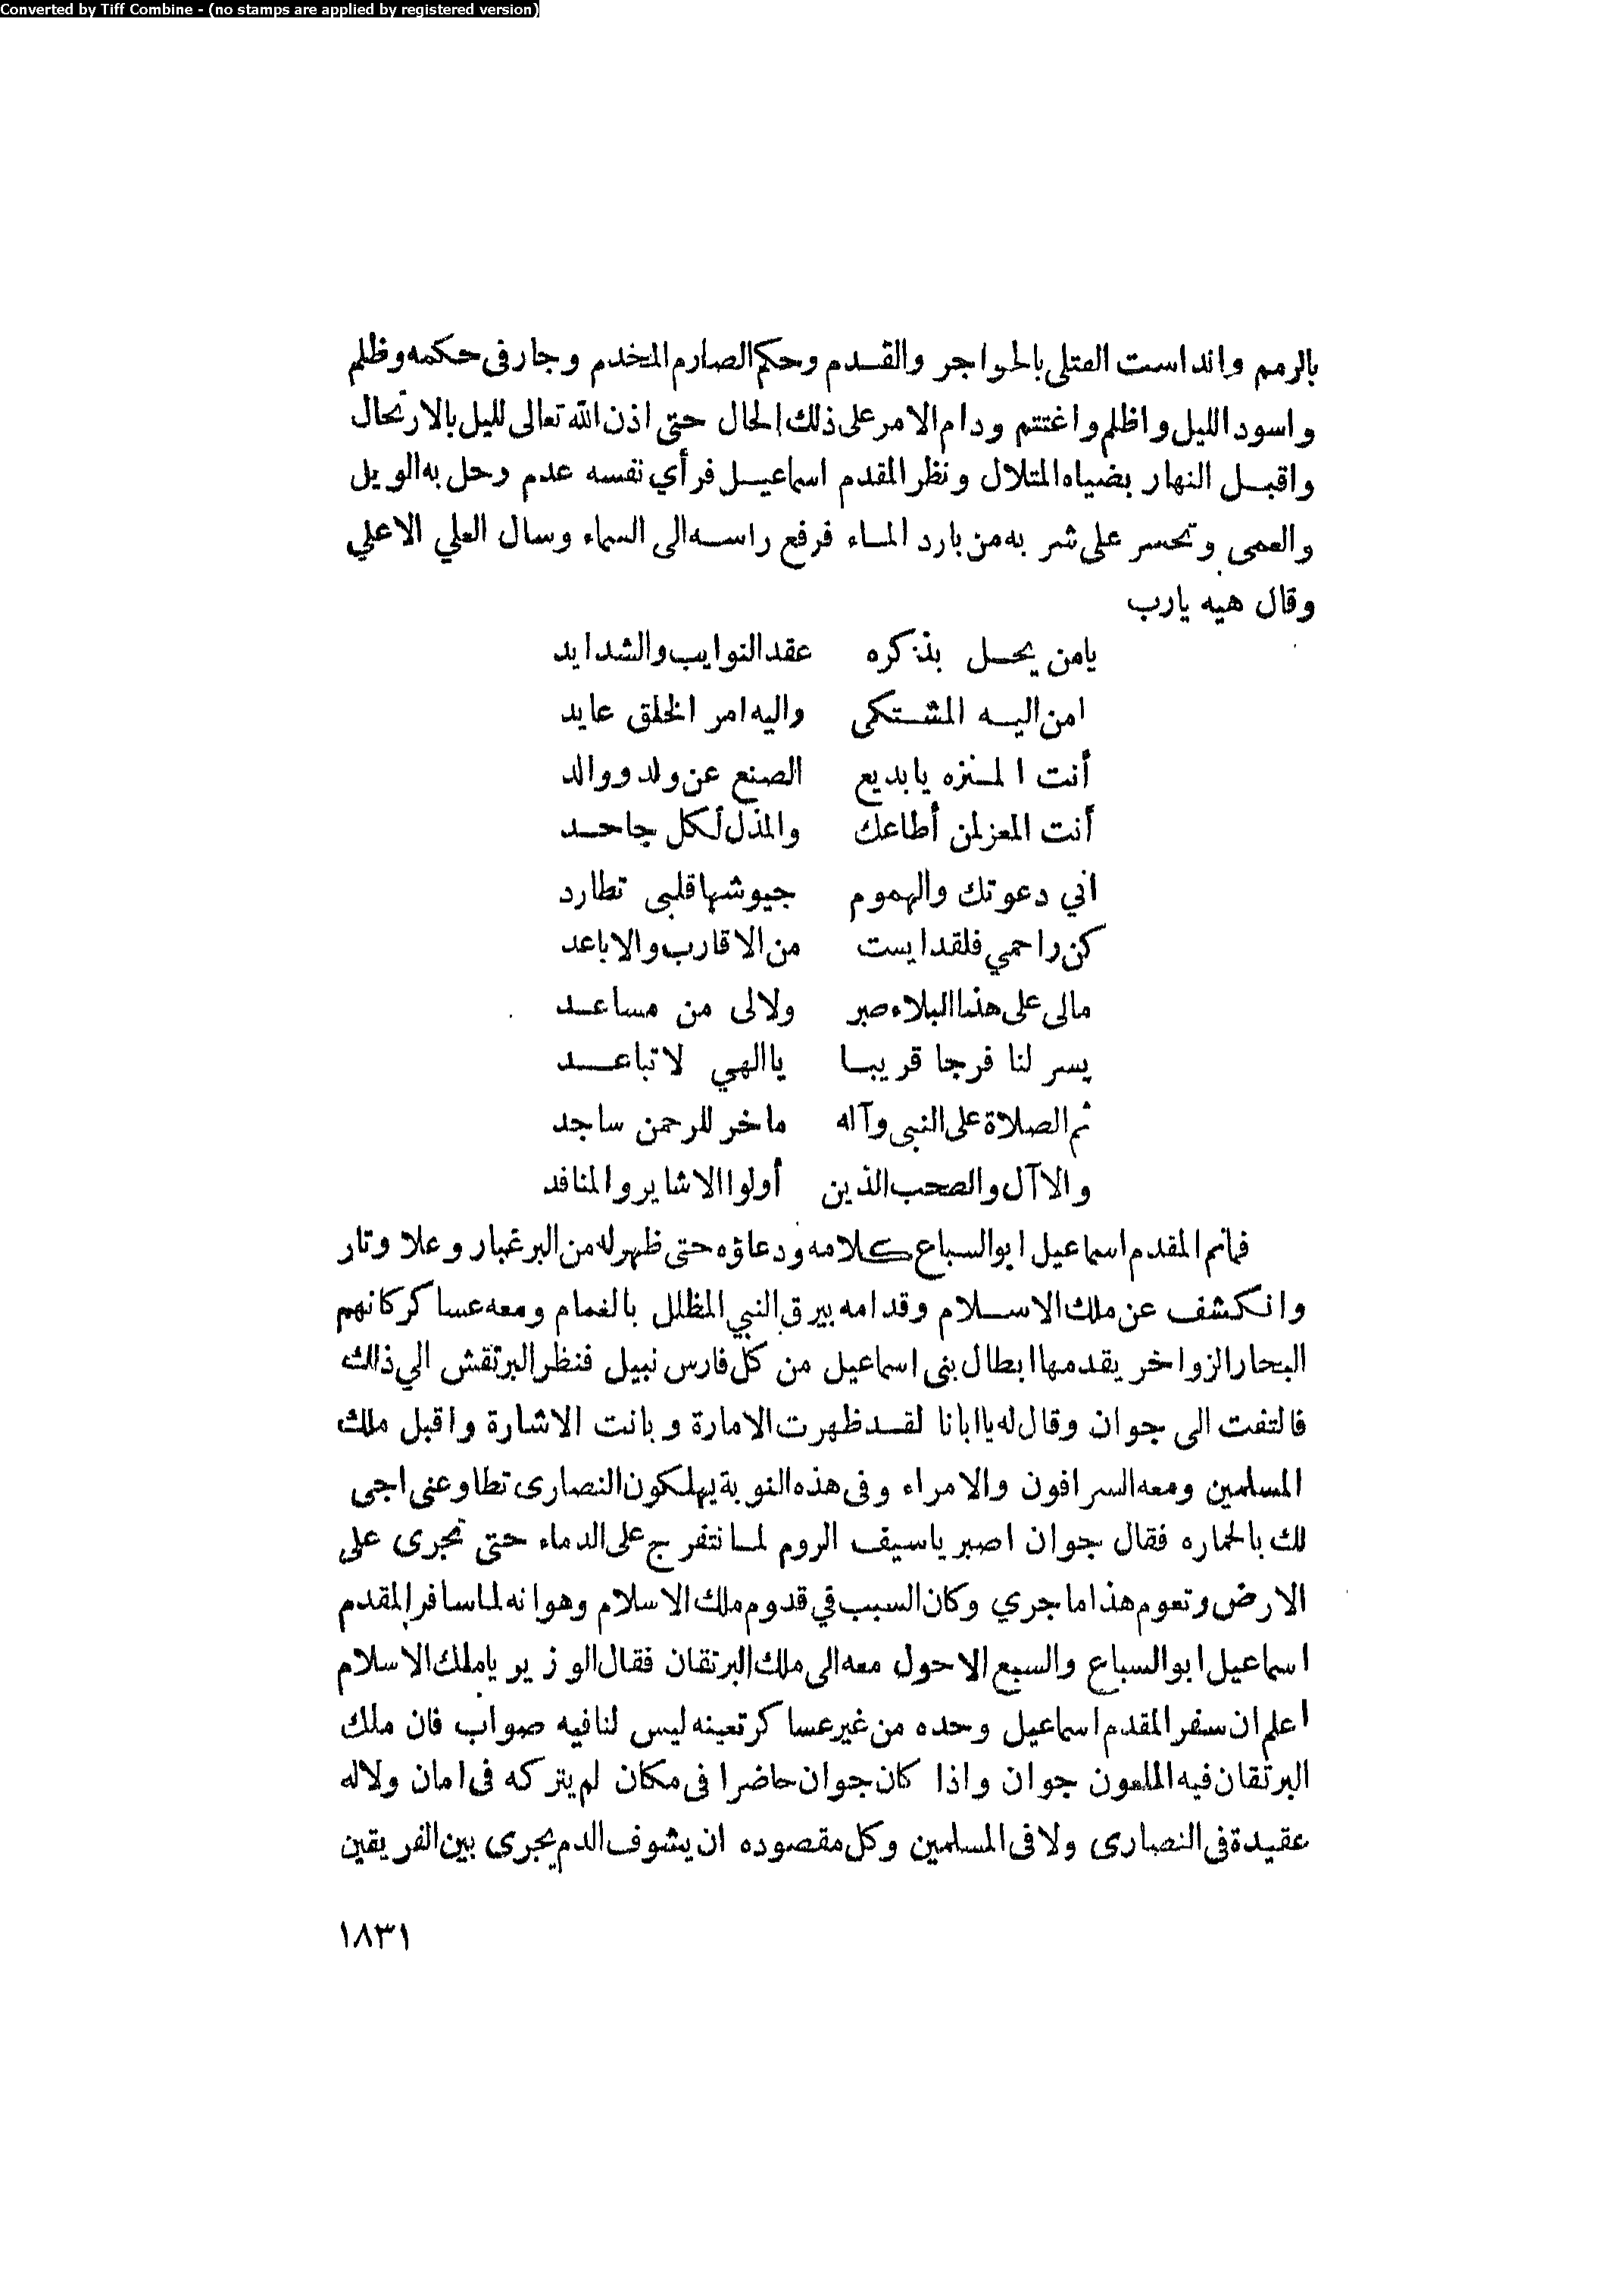 Converted by Tiff Combine - (no stamps are applied by registered version)
بالرمم وانداست القتلى بالحواجر والقدم وحكم الصارم المخدم وجار فى حكمه وظلم
واسود الليل واظلم واغتتم ودام الامر على ذلك الحال حتى اذن الله تعالى لليل بالارتحال
واقبل النهار بضياه المتلال ونظر المقدم اسماعيل فرأي نفسه عدم وحل به الويل
والعمى وتحسر على شربه من بارد الماء فرفع راسه الى السماء وسال العلي الاعلي
وقال هيه يارب
يامن يحل بذكره عقد النوايب والشدايد
امن اليه المشتكى واليه امر الخلق عايد
أنت المنزه يابديع الصنع عن ولد ووالد
أنت المعز لمن أطاعك والمذل لكل جاحد
اني دعوتك والهموم جيوشها قلبى تطارد
كن راحمي فلقد ايست من الاقارب والاباعد
مالى على هذا البلاء صبر ولالى من مساعد
يسر لنا فرجا قريبا ياالهي لاتباعد
ثم الصلاة على النبى وآله ماخر للرحمن ساجد
والاآل والصحب الذين أولوا الاشاير والمنافد
فماتم المقدم اسماعيل ابو السباع كلامه ودعاؤه حتى ظهر له من البر غبار وعلا وتار
وانكشف عن ملك الاسلام وقدامه بيرق النبي المظلل بالغمام ومعه عساكر كانهم
البحار الزواخر يقدمها ابطال بنى اسماعيل من كل فارس نبيل فنظر البرتقش الي ذالك
فالتفت الى جوان وقال له ياابانا لقد ظهرت الامارة وبانت الاشارة واقبل ملك
المسلمين ومعه السرافون والامراء وفى هذه النوبة يهلكون النصارى تطاوعنى اجى
لك بالحماره فقال جوان اصبر ياسيف الروم لما نتفرج على الدماء حتى تجرى على
الارض وتعوم هذا ماجري وكان السبب في قدوم ملك الاسلام وهوانه لما سافر المقدم
اسماعيل ابو السباع والسبع الاحول معه الى ملك البرتقان فقال الوزير ياملك الاسلام
اعلم ان سفر المقدم اسماعيل وحده من غير عساكر تعينه ليس لنا فيه صواب فان ملك
البرتقان فيه الملعون جوان واذا كان جوان حاضرا فى مكان لم يتركه فى امان ولاله
عقيدة فى النصارى ولا فى المسلمين وكل مقصوده ان يشوف الدم يجرى بين الفريقين
١٨٣١